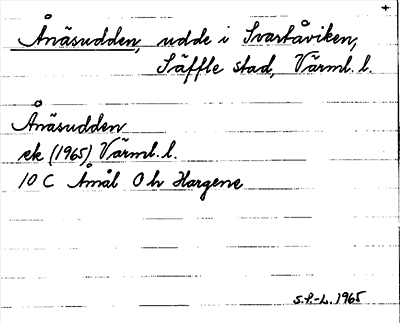 +
Ånäsudden, udde i Svartåviken,
Säffle stad, Värml. l.
Ånäsudden
ek (1965) Värml. l.
10 C Åmål O h Hargene
S.P.-L. 1965